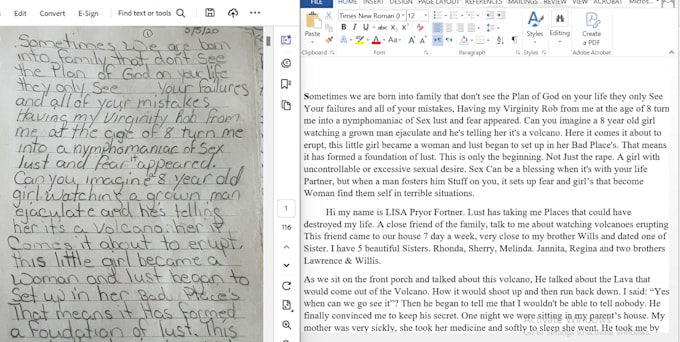 Edit Convert E-Sign Find text or tools
① 5/5/20
Sometimes we are born
into family that dont see
the Plan of God on your life
they only See your failures
and all of your mistakes
Having my Virginity Rob from
me at the age of 8 turn me
into a nymphomaniac of Sex
lust and Fear it appeared.
Can you imagine a 8 year old
girl watching a grown man
ejaculate and he's telling
her it's a Volcano. her it
Comes it about to erupt,
this little girl became a
Woman and lust began to
Set up in her Bad Place's
That means it Has formed
a foudation of lust. This
1
116
FILE HOME INSERT DESIGN PAGE LAYOUT REFERENCES MAILINGS REVIEW VIEW ACROBAT
Times New Roman 12
Paste
B I U abc X₂ X²
A A Aa A A
Styles Editing Create
a PDF
Clipboard Font Paragraph Styles Adobe Acrobat
Sometimes we are born into family that don't see the Plan of God on your life they only See
Your failures and all of your mistakes, Having my Virginity Rob from me at the age of 8 turn
me into a nymphomaniac of Sex lust and fear appeared. Can you imagine a 8 year old girl
watching a grown man ejaculate and he's telling her it's a volcano. Here it comes it about to
erupt, this little girl became a woman and lust began to set up in her Bad Place's. That means
it has formed a foundation of lust. This is only the beginning. Not Just the rape. A girl with
uncontrollable or excessive sexual desire. Sex Can be a blessing when it's with your life
Partner, but when a man fosters him Stuff on you, it sets up fear and girl's that become
Woman find them self in terrible situations.
Hi my name is LISA Pryor Fortner. Lust has taking me Places that could have
destroyed my life. A close friend of the family, talk to me about watching volcanoes erupting
This friend came to our house 7 day a week, very close to my brother Wills and dated one of
Sister. I have 5 beautiful Sisters. Rhonda, Sherry, Melinda. Jannita, Regina and two brothers
Lawrence & Willis.
As we sit on the front porch and talked about this volcano, He talked about the Lava that
would come out of the Volcano. How it would shoot up and then run back down. I said: “Yes
when can we go see it”? Then he began to tell me that I wouldn't be able to tell nobody. He
finally convinced me to keep his secret. One night we were sitting in my parent's house. My
mother was very sickly, she took her medicine and softly to sleep she went. He took me by
Activate Windows
Go to Settings to activate Windows.